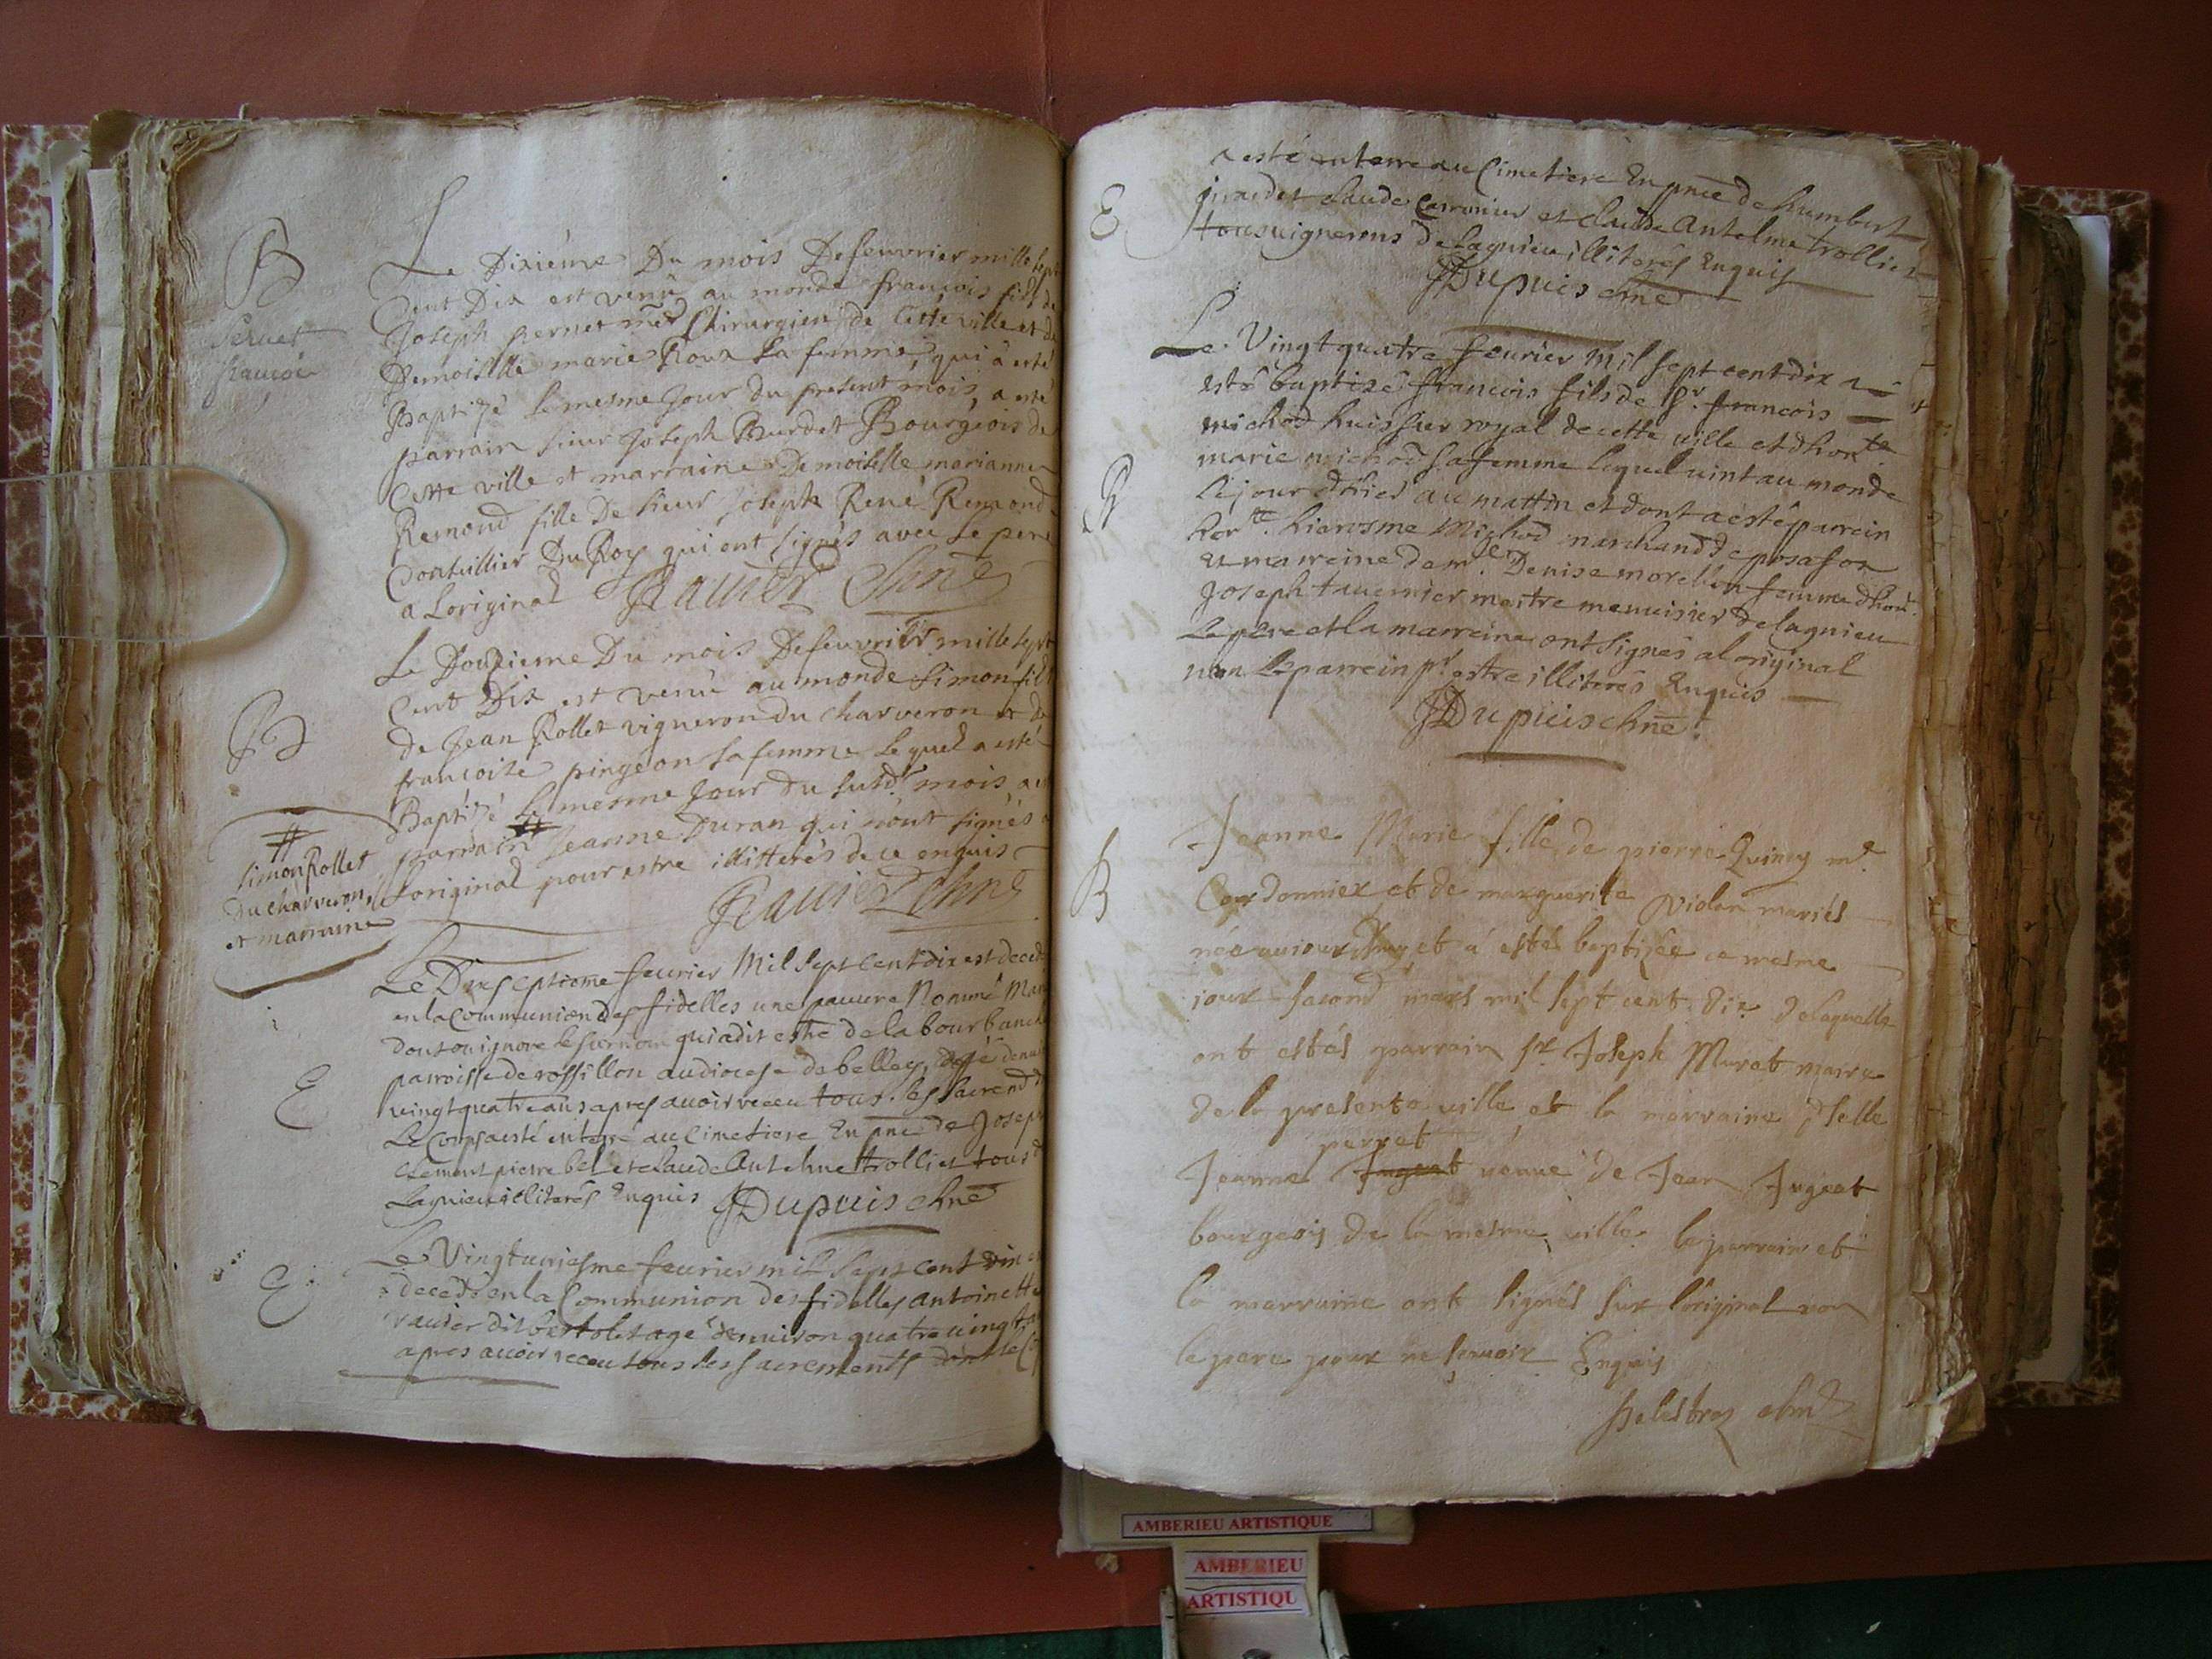 B
Le Dixiéme Du mois De feuvrier mille sept
Cent Dix est venû au monde françois fils de
Pernet
françois
Joseph pernet mre Chirurgien de Cette ville et de
Demoiselle marie Roux sa femme qui à esté
Baptizé le mesme Jour du present mois, a esté
parrain sieur Joseph Burdet Bourgeois de
Cette ville et marraine Demoiselle marianne
Remond fille De sieur Joseph René Remond
Conseillier Du Roy qui ont signés avec le pere
a Loriginal
B
Le Douzieme Du mois De feuvrier mille sept
Cent Dix est venû au monde Simon fils
de Jean Rollet vigneron du charveron et de
françoise pingeon sa femme Lequel a esté
Baptizé le mesme Jour du susd. mois a
parrain # Jeanne Duran qui n'ont signés a
Loriginal pour estre illitterés de ce enquis
#
simon Rollet
du charveron
et marraine
Le Dixseptiome feurier Mil Sept Cent dix est decedé
en la Communion des fidelles une pauure Nommé
dont on ignore le surnom qui a dit estre de la bourbanche
E
parroisse de rossillon au diocese de belley,
uingt quatre ans apres auoir receu tous les
Le Corps a esté enterré au Cimetiere En pnce de Joseph
Clement pierre bel et claude Antelme trollier tous d
Lagnieu illiterés Enquis Dupuis chne
E
Le Vingtuniesme feurier mil Sept Cent dix
decedé en la Communion des fidelles antoinette
dit bertolet agé d'enuiron quatre uingt
apres auoir receu tous les sacrements dont le
a esté enterre au Cimetiere En pnce de humbert
E
girardet claude Carronier et claude Antelme trollier
tous uignerons de Lagnieu illiterés Enquis
Dupuis chne
Le Vingt quatre feurier Mil sept cent dix a
esté baptizé francois fils de Sr. francois
michod huissier royal de cette uille et d'honte
marie michod sa femme lequel uint au monde
B
Le jour d'hier au mattin et dont a esté parrein
honte. hierosme Michod marchand de posafon
Et marreine demle. Denise morellon femme d'hon.
Joseph tauernier maitre menuisier de Lagnieu
Le pere et la marreine ont signés a l original
non le parrein pr. estre illiterés Enquis
Dupuis chne.
Jeanne Marie fille de pierre Quincy me
B
Cordonnier et de marguerite violan mariés
née auiourdhuy et a estés baptizée ce mesme
jour second mars mil sept cent dix de laquelle
ont estés parrain sr. Joseph Murat maire
de la presente uille et la marraine dselle
perret
Jeanne Jugeat ueuue de Jean Jugeat
bourgeois de la mesme uille le parrain et
la marraine ont signés sur l'original non
le pere pour ne sçauoir Enquis
AMBERIEU ARTISTIQUE
AMBERIEU
ARTISTIQU